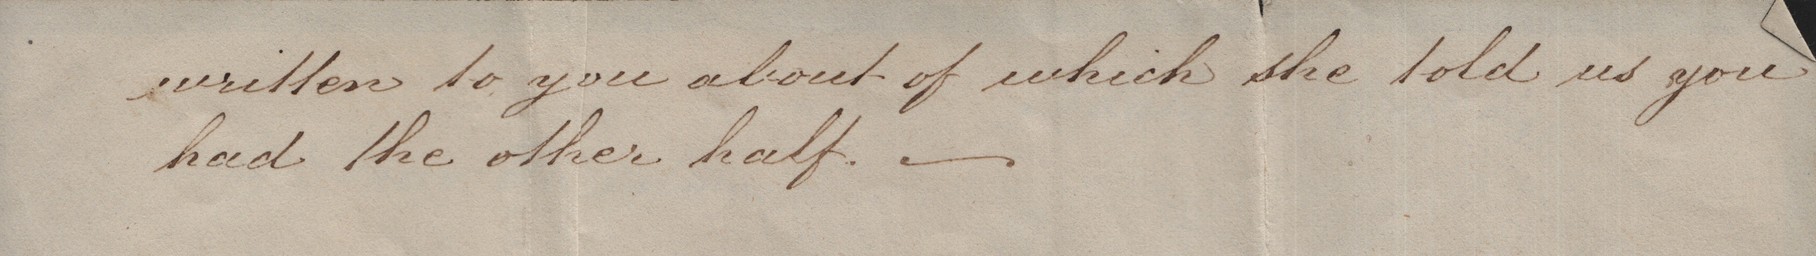 written to you about of which she told us you
had the other half. —